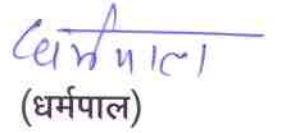 धर्मपाल
(धर्मपाल)